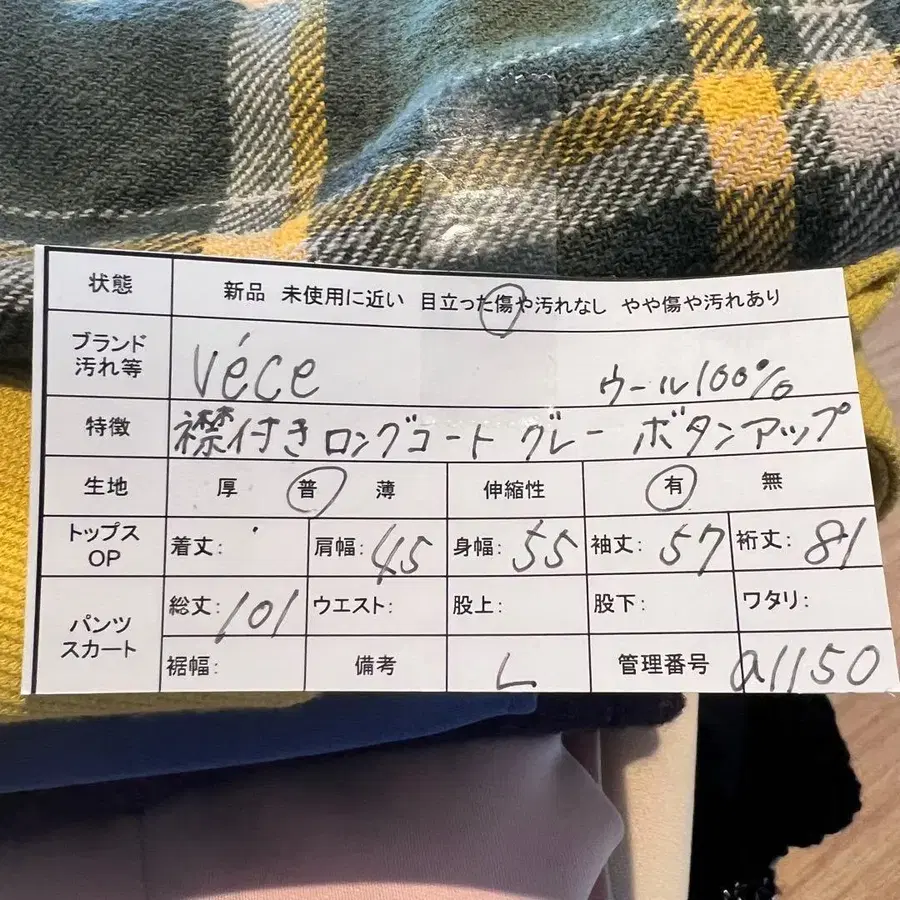 状態 新品 未使用に近い 目立った傷や汚れなし やや傷や汚れあり
ブランド
汚れ等 véce ウール100%
特徴 襟付きロングコート グレー ボタンアップ
生地 厚 普 薄 伸縮性 有 無
トップス
OP 着丈: 肩幅: 45 身幅: 55 袖丈: 57 裄丈: 81
パンツ
スカート 総丈: 101 ウエスト: 股上: 股下: ワタリ:
裾幅: 備考 L 管理番号 a1150